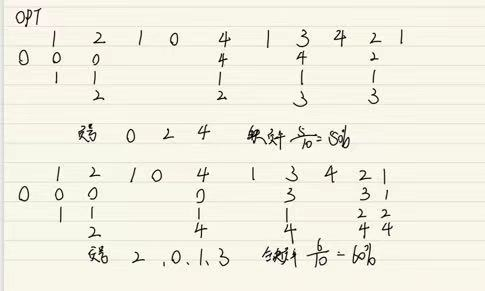 OPT
1 2 1 0 4 1 3 4 2 1
0 0 0 4 4 2
1 1 1 1 1
2 2 3 3
页号 0 2 4 缺页率 5/10 = 50%
1 2 1 0 4 1 3 4 2 1
0 0 0 0 3 3 1
1 1 1 1 2 2
2 4 4 4 4
页号 2, 0, 1, 3 缺页率 6/10 = 60%